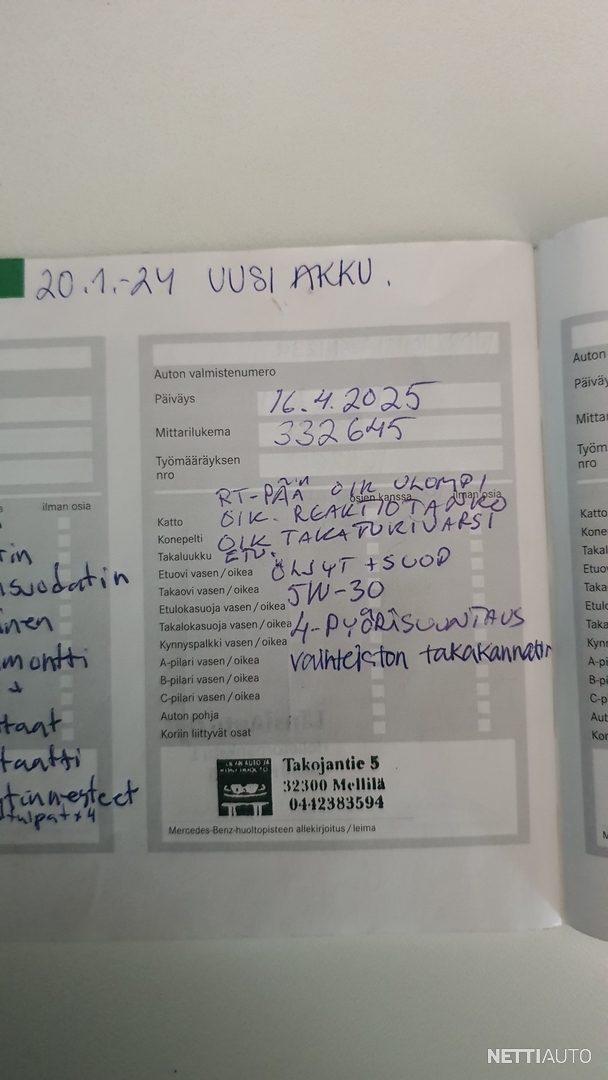 20.1.-24 UUSI AKKU.
ilman osia
suodatin
staat
taatti
tulpat x 4
Auton valmistenumero
Päiväys 16.4.2025
Mittarilukema 332645
Työmääräyksen
nro
osien kanssa ilman osia
RT-PÄÄ OIK ULOMPI
Katto OIK. REAKTIOTANKO
Konepelti OIK TAKATUKIVARSI
Takaluukku ETU.
Etuovi vasen/oikea ÖLJYT + SUOD
Takaovi vasen/oikea 5W-30
Etulokasuoja vasen/oikea
Takalokasuoja vasen/oikea 4-PYÖRÄSUUNTAUS
Kynnyspalkki vasen/oikea
A-pilari vasen/oikea vaihteiston takakannatin
B-pilari vasen/oikea
C-pilari vasen/oikea
Auton pohja
Koriin liittyvät osat
Takojantie 5
32300 Mellilä
0442383594
Mercedes-Benz-huoltopisteen allekirjoitus/leima
Auton
Päiväy
Mittar
Työm
nro
Katto
Kone
Takal
Etuov
Takao
Etulo
Taka
Kynn
A-pi
B-pi
C-pi
Aut
Kor
NETTIAUTO